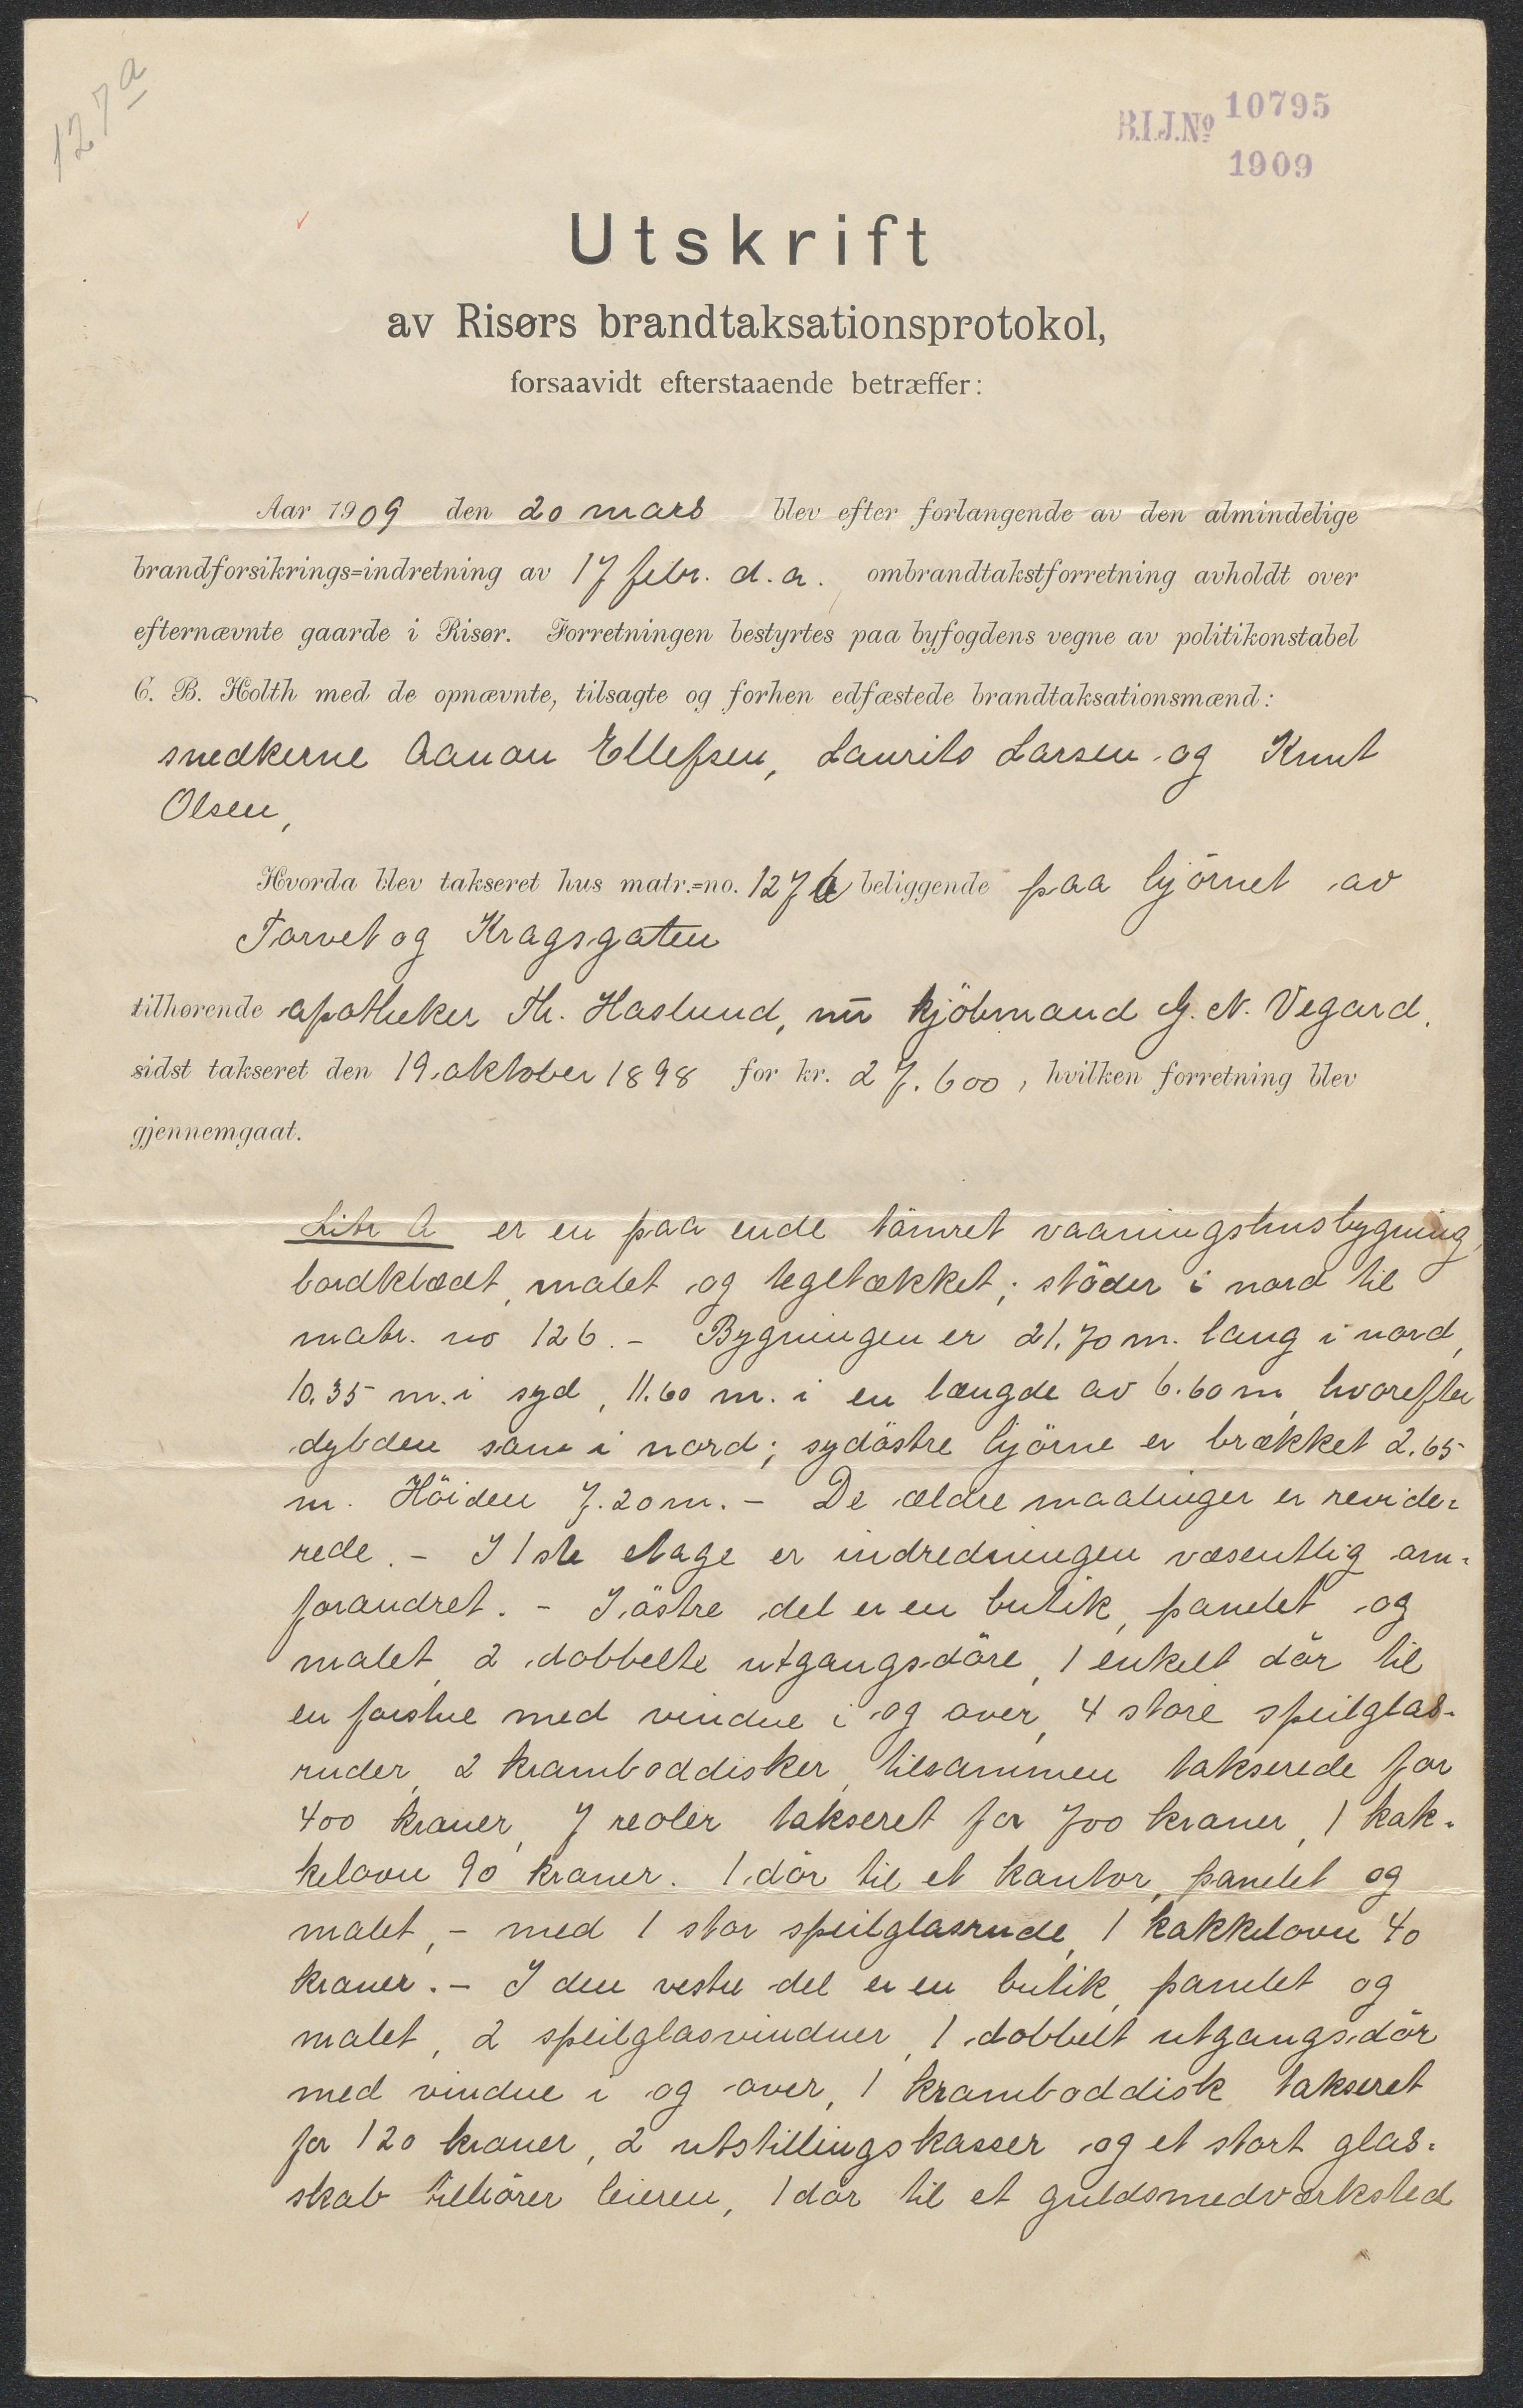 127a
B.I.J.No 10795
1909
Utskrift
av Risørs brandtaksationsprotokol,
forsaavidt efterstaaende betræffer:
Aar 1909 den 20 mars blev efter forlangende av den almindelige
brandforsikrings=indretning av 17 febr. d. a. ombrandtakstforretning avholdt over
efternævnte gaarde i Risør. Forretningen bestyrtes paa byfogdens vegne av politikonstabel
C. B. Holth med de opnævnte, tilsagte og forhen edfæstede brandtaksationsmænd:
snedkerne Aanon Ellefsen, Laurits Larsen og Knut
Olsen,
Hvorda blev takseret hus matr.=no. 127a beliggende paa hjörnet av
Torvet og Kragsgaten
tilhørende apotheker Th. Haslund, nu kjöbmand G. N. Vegard,
sidst takseret den 19. oktober 1898 for kr. 27.600, hvilken forretning blev
gjennemgaat.
Litr A er en paa ende tömret vaaningshusbygning,
bordklædt, malet og tegltækket; stöder i nord til
matr. no 126. - Bygningen er 21.70 m. lang i nord,
10.35 m. i syd, 11.60 m. i en længde av 6.60 m, hvorefter
dybden som i nord; sydöstre hjörne er brækket 2.65
m. Höiden 7.20 m. - De ældre maalinger er revide=
rede. - I 1ste etage er indredningen væsentlig om=
forandret. - I östre del er en butik, panelet og
malet, 2 dobbelte utgangsdöre, 1 enkelt dör til
en forstue med vindue i og over, 4 store speilglas-
ruder, 2 kramboddisker, tilsammen takserede for
400 kroner, 7 reoler takseret for 700 kroner, 1 kak-
kelovn 90 kroner. 1 dör til et kontor, panelet og
malet, - med 1 stor speilglasrude, 1 kakkelovn 40
kroner. - I den vestre del er en butik, panelet og
malet, 2 speilglasvinduer, 1 dobbelt utgangsdör
med vindue i og over, 1 kramboddisk takseret
for 120 kroner, 2 utstillingskasser og et stort glas=
skab tilhörer leieren, 1 dör til et guldsmedværksted